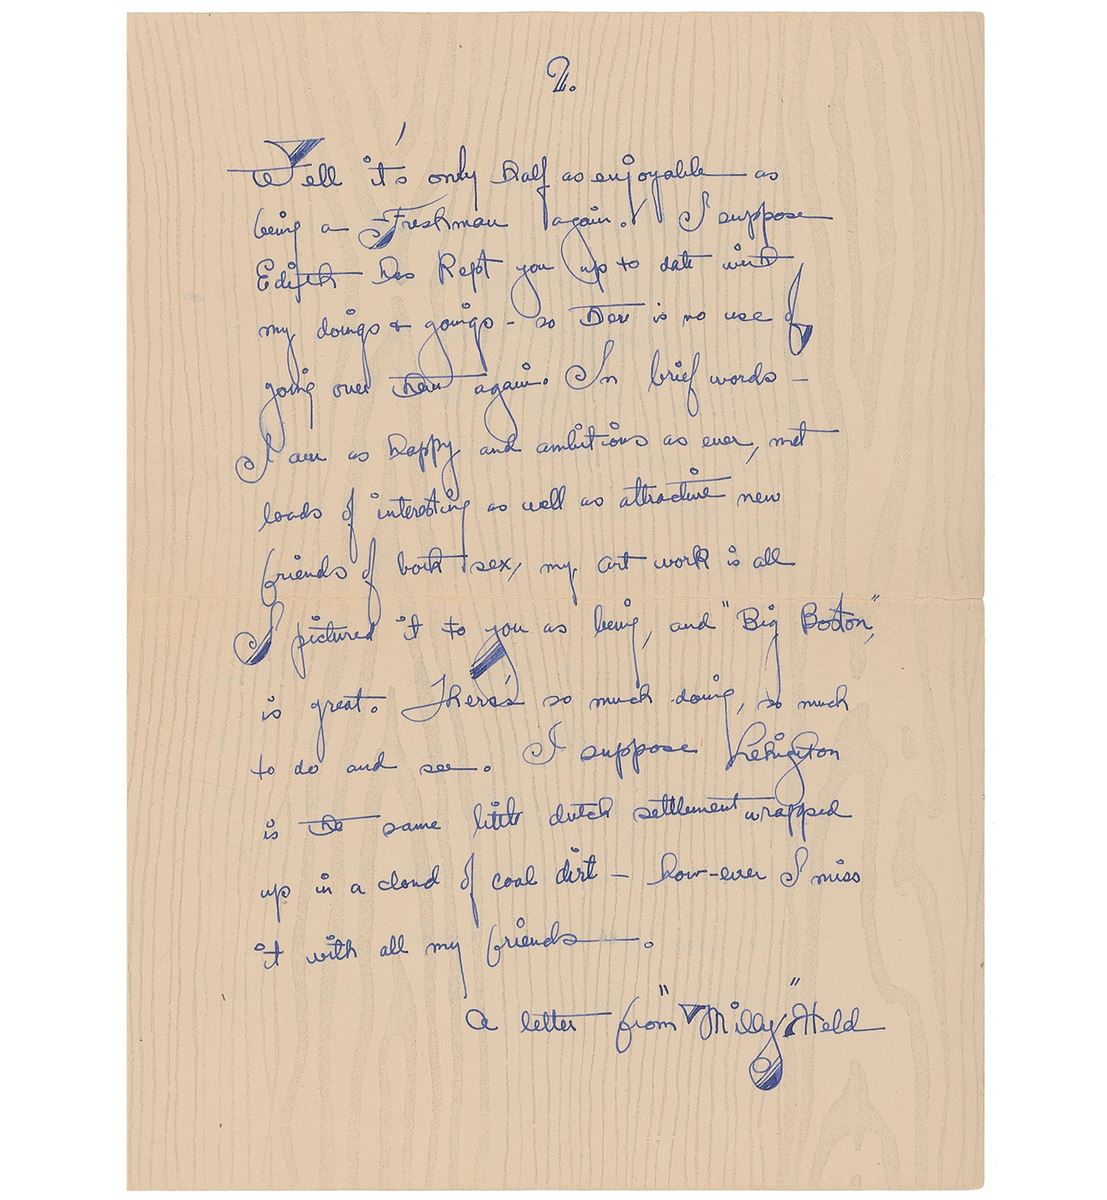 2.
Well it's only half as enjoyable as
being a Freshman again. I suppose
Edith has kept you up to date with
my doings & goings - so there is no use of
going over them again. In brief words -
I am as happy and ambitious as ever, met
loads of interesting as well as attractive new
friends of both sex, my art work is all
I pictured it to you as being, and "Big Boston,"
is great. There's so much doing, so much
to do and see. I suppose Lehighton
is the same little dutch settlement wrapped
up in a cloud of coal dirt - how-ever I miss
it with all my friends.
A letter from "Milly" Held